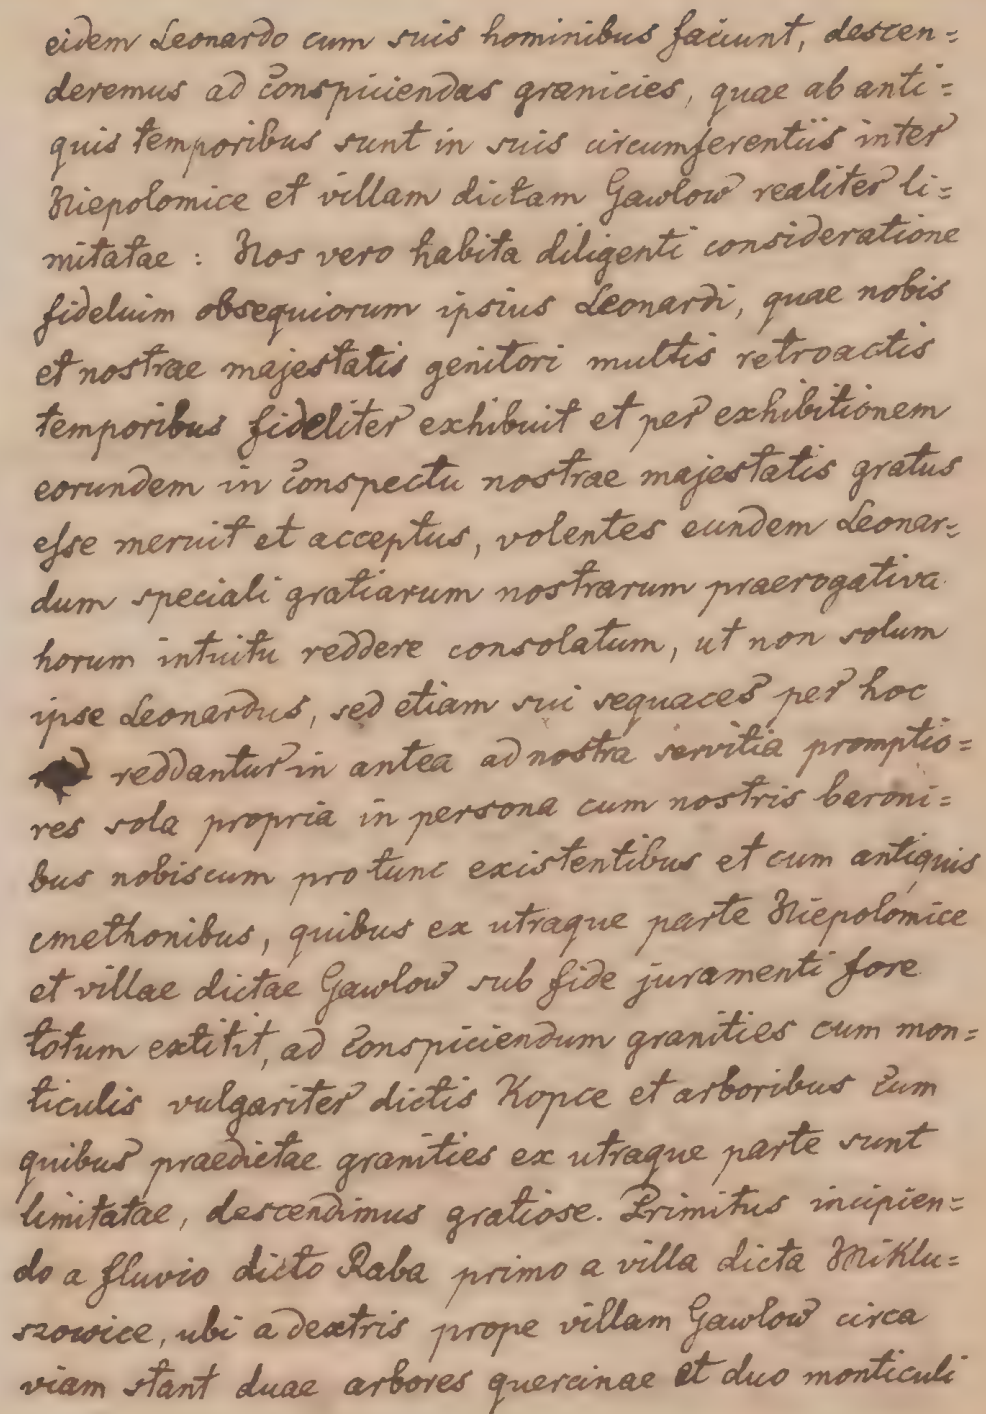 eidem Leonardo cum suis hominibus faciunt, descen=
deremus ad conspiciendas granicies, quae ab anti=
quis temporibus sunt in suis circumferentiis inter
Niepolomice et villam dictam Gawlow realiter li=
mitatae : Nos vero habita diligenti consideratione
fidelium obsequiorum ipsius Leonardi, quae nobis
et nostrae majestatis genitori multis retroactis
temporibus fideliter exhibuit et per exhibitionem
eorundem in conspectu nostrae majestatis gratus
esse meruit et acceptus, volentes eundem Leonar=
dum speciali gratiarum nostrarum praerogativa
horum intuitu reddere consolatum, ut non solum
ipse Leonardus, sed etiam sui sequaces per hoc
reddantur in antea ad nostra servitia promptio=
res sola propria in persona cum nostris baroni=
bus nobiscum pro tunc existentibus et cum antiquis
cmethonibus, quibus ex utraque parte Niepolomice
et villae dictae Gawlow sub fide juramenti fore
totum extitit, ad conspiciendum granities cum mon=
ticulis vulgariter dictis Kopce et arboribus cum
quibus praedictae granities ex utraque parte sunt
limitatae, descendimus gratiose. Primitus incipien=
do a fluvio dicto Raba primo a villa dicta Miklu=
szowice, ubi a dextris prope villam Gawlow circa
viam stant duae arbores quercinae et duo monticuli